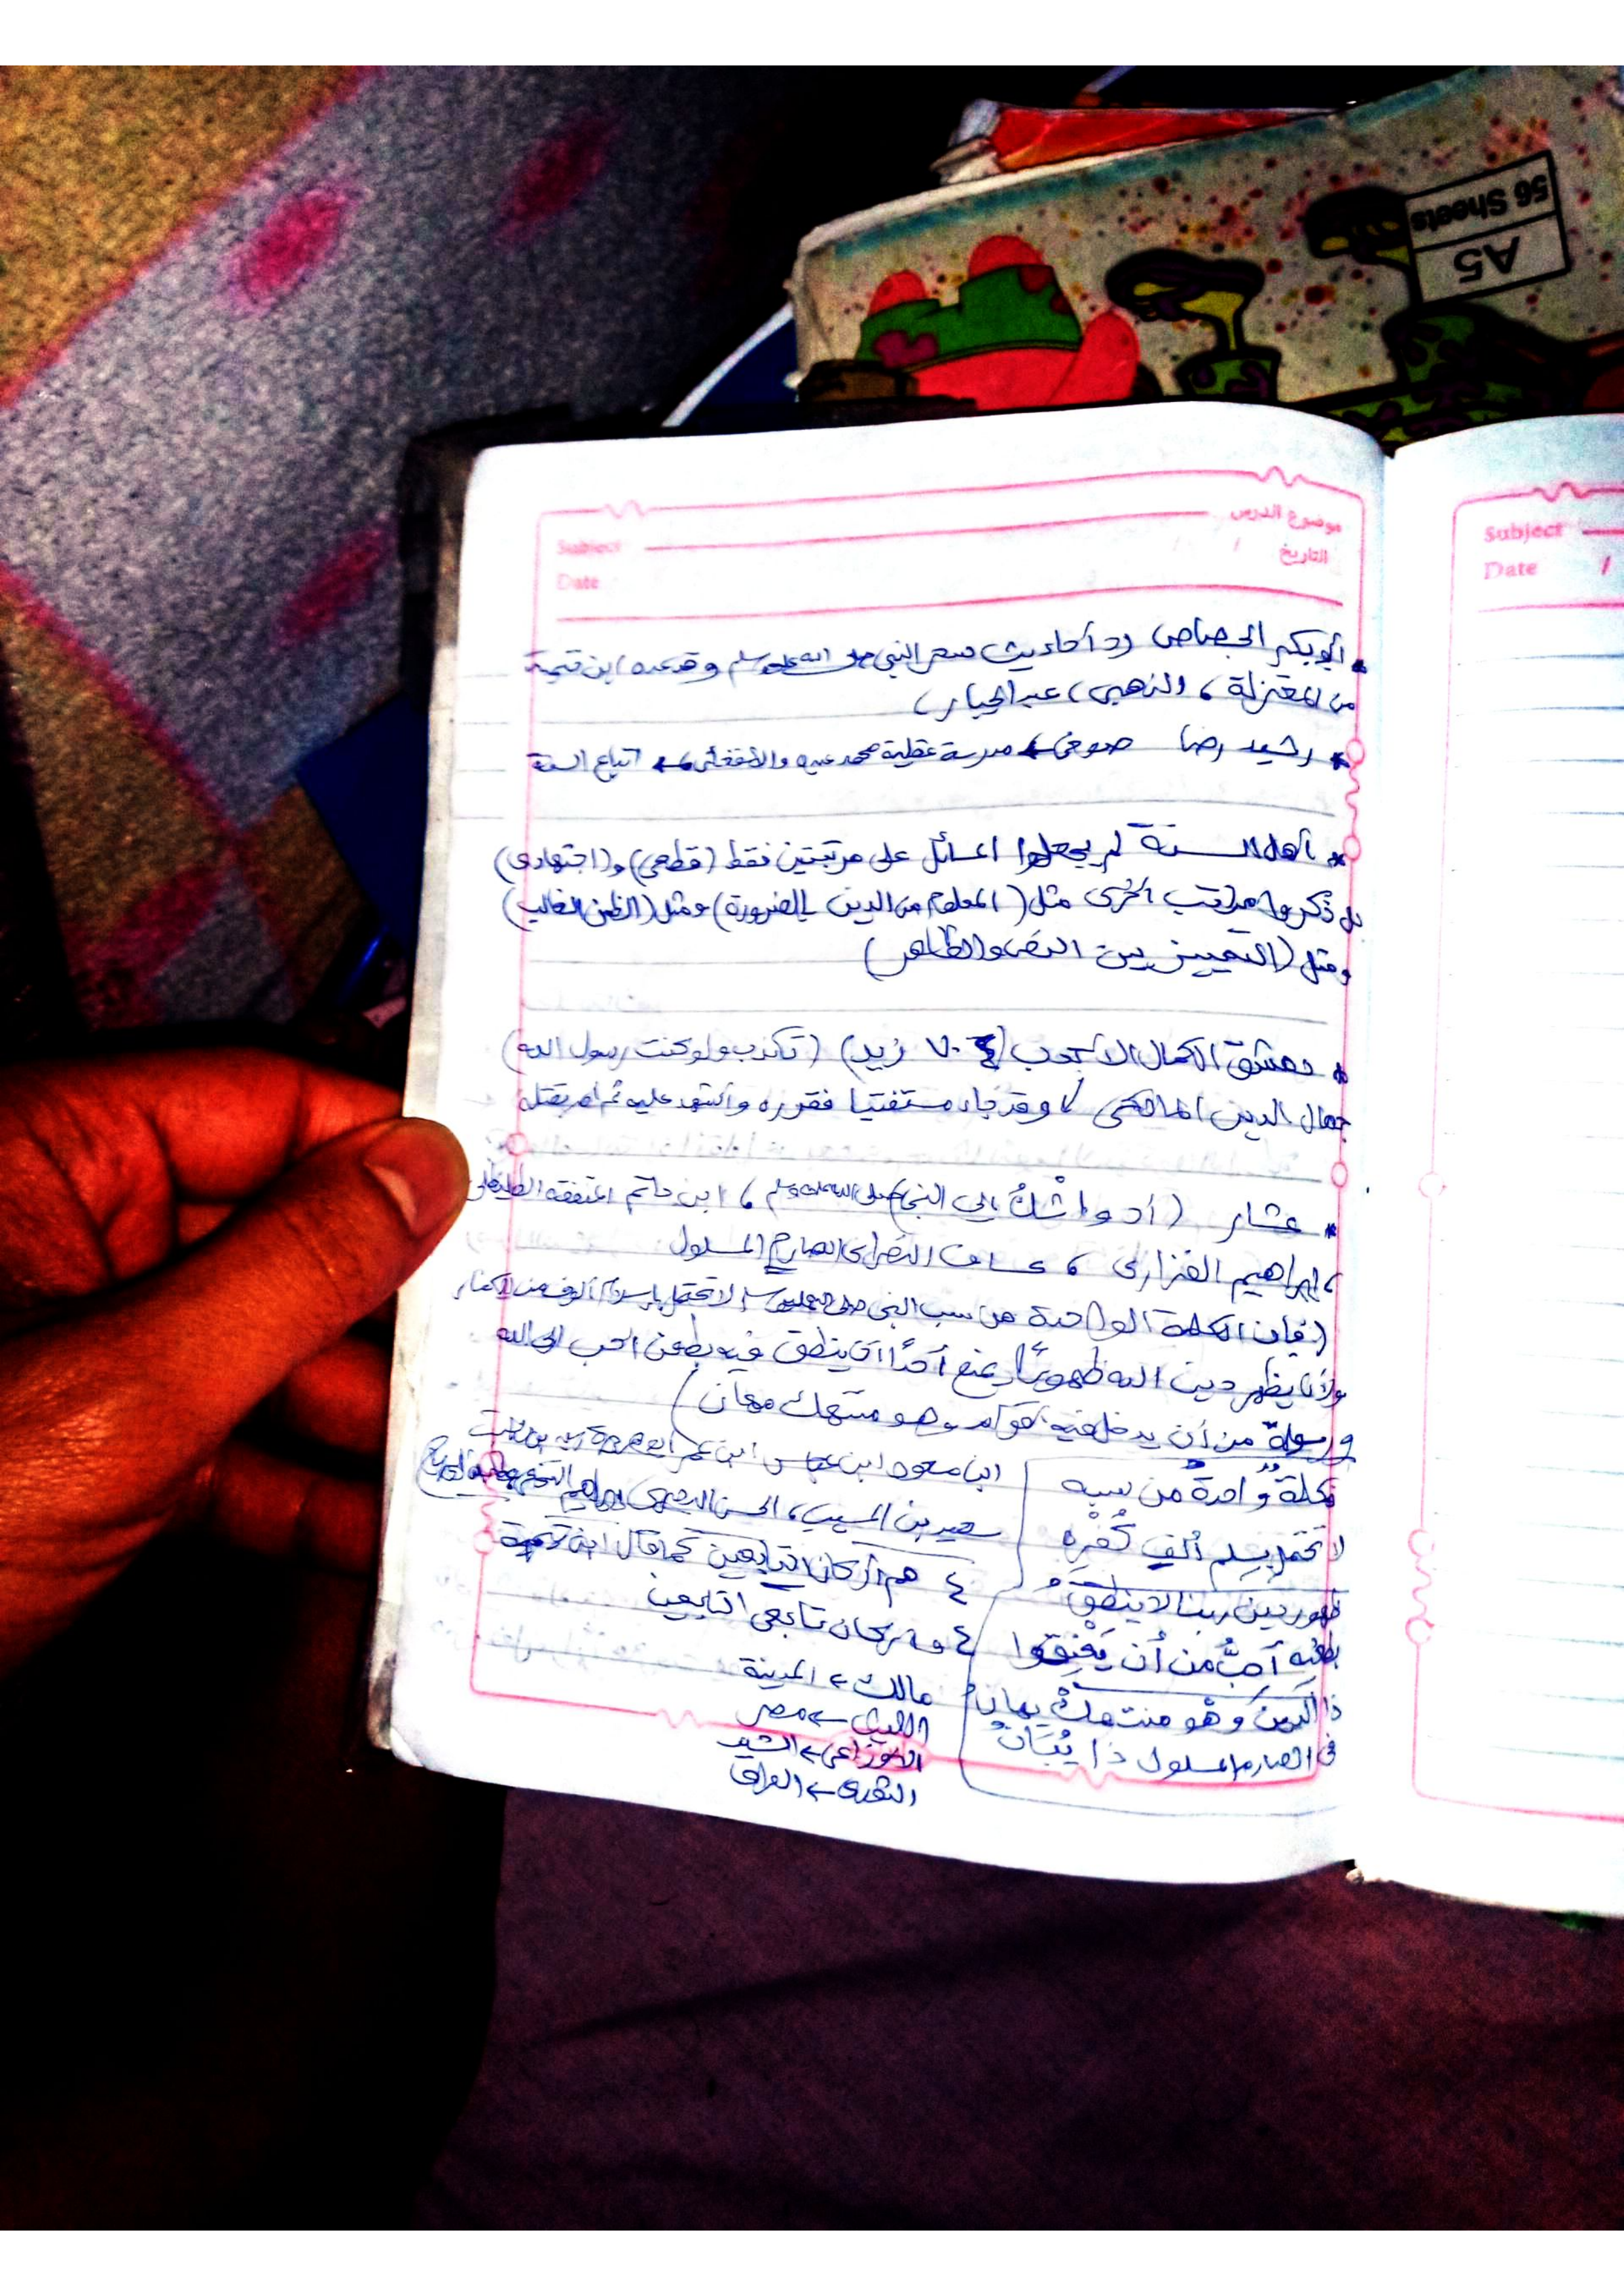 56 Sheets
A5
موضوع الدرس
Subject
التاريخ / /
Date
Subject
Date /
* أبو بكر الجصاص رد أحاديث سحر النبي صلى الله عليه وسلم وقد عده ابن تيمية
من المعتزلة، الذهبي، عبد الجبار،
* رشيد رضا صوفي ← مدرسة عقلية محمد عبده والأفغاني ← اتباع السنة
* أهل السنة لم يجعلوا المسائل على مرتبتين فقط (قطعي) و(اجتهادي)
بل ذكروا مراتب أخرى مثل (المعلوم من الدين بالضرورة) ومثل (الظن الغالب)
ومثل (التمييز بين النص والظاهر)
* دمشق الكمال الأحدب (زيد) (تكذب ولو كنت رسول الله)
جمال الدين المالكي وقد جاء مستفتيا فقوره وأشهد عليه ثم أمر بقتله
* عشار (أد واشْكُ إلى النبي) صلى الله عليه وسلم، ابن حاتم المتفقه الطليطلي
، إبراهيم الفزاري، عساف النصراني الصارم المسلول
(فإن الكلمة الواحدة من سب النبي صلى الله عليه وسلم لا تحتمل بإسلام ألوف من الكفار
ولأن يظهر دين الله ظهورًا يمنع أحدًا أن ينطق فيه بطعن أحب إلى الله
ورسوله من أن يدخل فيه أقوام وهو منتهك مهان)
بكلمة واحدة من سبه
لا تحتمل بسلم ألف كفره
ظهور دين ربنا لا ينطق
بطعنه أحب من أن يعتنقوا
ذا الدين وهو منتهك مهان
في الصارم المسلول ذا
ابن مسعود ابن عباس ابن عمر أبو هريرة زيد بن ثابت
سعيد بن المسيب، الحسن البصري إبراهيم النخعي
٤ هم أركان التابعين كما قال ابن تيمية
٤ أركان تابعي التابعين
مالك ← المدينة
الليث ← مصر
الأوزاعي ← الشام
الثوري ← العراق